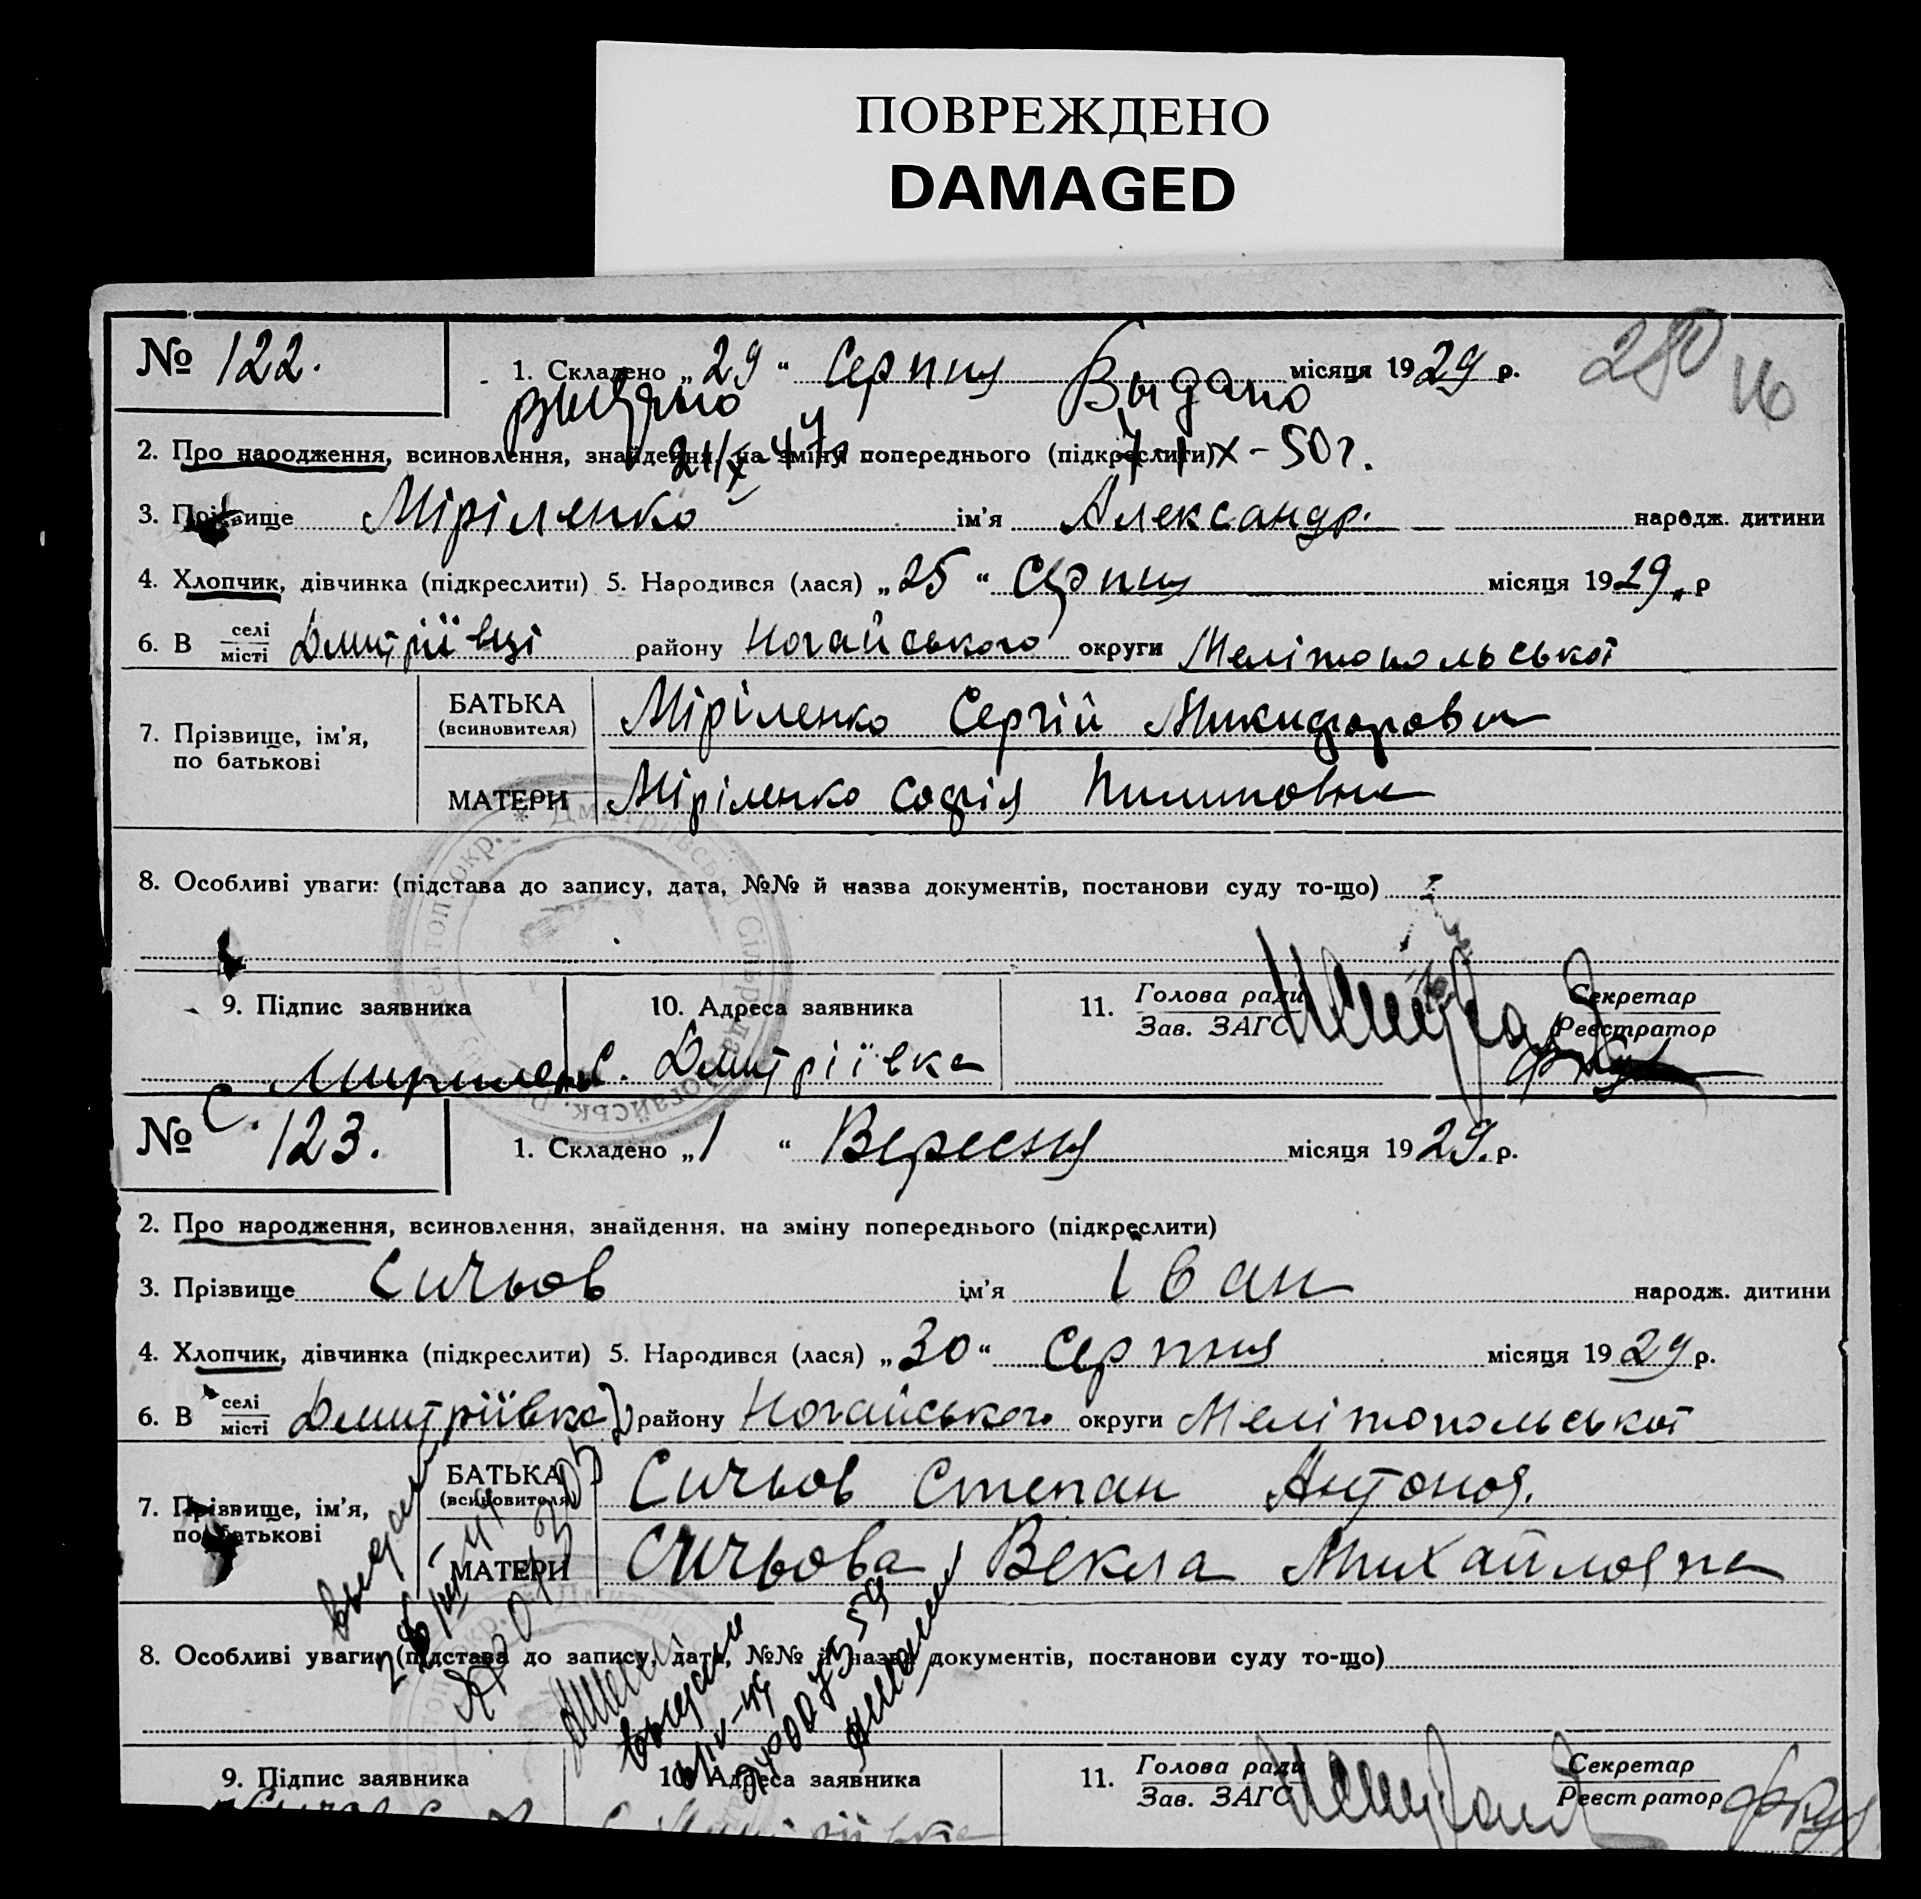 ПОВРЕЖДЕНО
DAMAGED
№ 122. 1. Складено „29“ Серпня місяця 1929 р. 280
Выдано Выдано
2. Про народження, всиновлення, знайдення, на зміну попереднього (підкреслити) X-50г.
3. Прізвище Міріленко ім'я Александр. народж. дитини
4. Хлопчик, дівчинка (підкреслити) 5. Народився (лася) „25“ Серпня місяця 1929. р
6. В селі/місті Дмитріївці району Ногайського округи Меліпопольської
7. Прізвище, ім'я, по батькові БАТЬКА (всиновителя) Міріленко Сергій Микифорович
МАТЕРИ Міріленко Софія Пилиповна
8. Особливі уваги: (підстава до запису, дата, №№ й назва документів, постанови суду то-що)
9. Підпис заявника 10. Адреса заявника 11. Голова ради / Зав. ЗАГС Секретар / Реєстратор
С. Дмитріївка
№ 123. 1. Складено „1“ Вересня місяця 1929. р.
2. Про народження, всиновлення, знайдення, на зміну попереднього (підкреслити)
3. Прізвище Сичьов ім'я Іван народж. дитини
4. Хлопчик, дівчинка (підкреслити) 5. Народився (лася) „30“ Серпня місяця 1929 р.
6. В селі/місті Дмитріївка району Ногайського округи Меліпопольської
7. Прізвище, ім'я, по батькові БАТЬКА (всиновителя) Сичьов Степан Антонов.
МАТЕРИ Сичьова Векла Михайловна
8. Особливі уваги: (підстава до запису, дата, №№ й назва документів, постанови суду то-що)
9. Підпис заявника 10. Адреса заявника 11. Голова ради / Зав. ЗАГС Секретар / Реєстратор